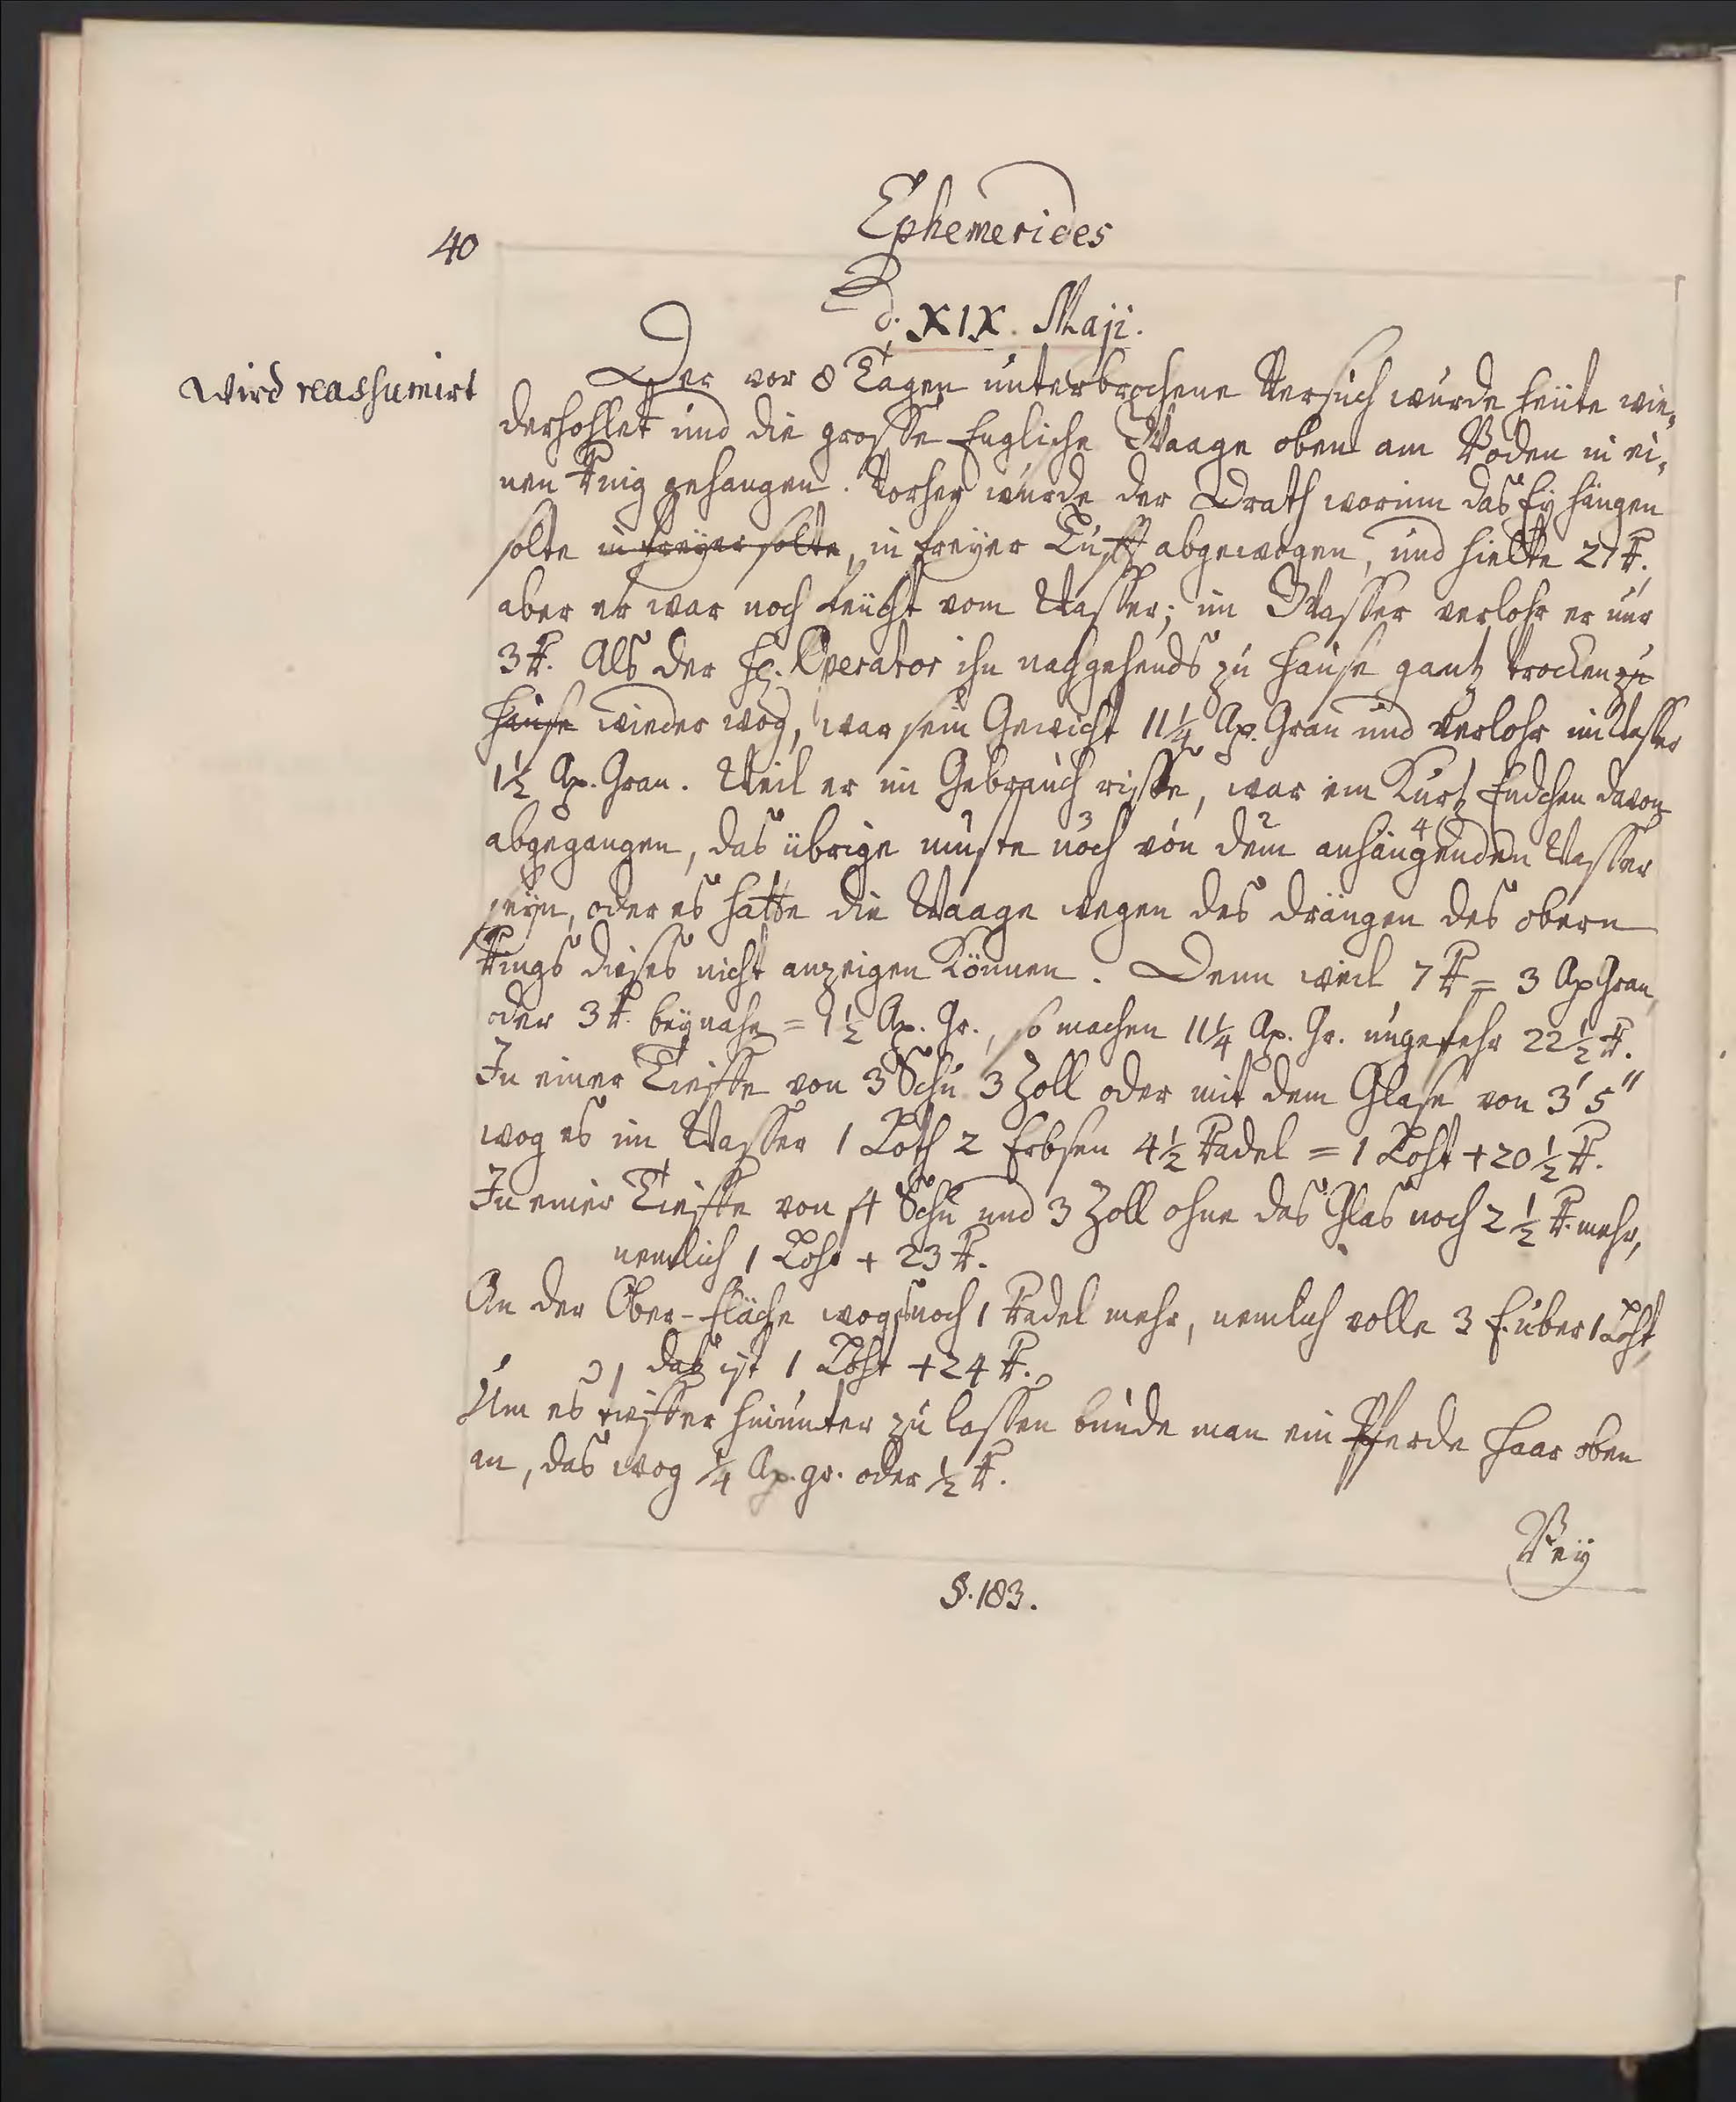 40
Ephemerides
d. XIX. Maji.
Wird reassumirt
Der vor 8 Tagen unterbrochene Versuch wurde heute wie-
derhohlet und die grosse Engliche Waage oben am Boden in ei-
nen Ring gehangen. Vorher wurde der Drath worinn das Ey hängen
solte in freyer solte, in freyer Lufft abgewogen, und hielte 27 R.
aber er war noch feücht vom Wasser; im Wasser verlohr er nur
3 R. Als der H. Operator ihn nachgehends zu Hause gantz trocken zu
Hause wieder wog, war sein Gewicht 11¼ Ap. Gran und verlohr im Wasser
1½ Ap. Gran. Weil er im Gebrauch risse, war ein Kurtz Endchen davon
abgegangen, das übrige muste noch von dem anhängenden Wasser
seyn, oder es hatte die Waage wegen des drängen des obern
Rings dieses nicht anzeigen Können. Denn weil 7 R = 3 Ap Gran,
oder 3 R. beynahe = 1½ Ap. Gr., so machen 11¼ Ap. Gr. ungefehr 22½ R.
In einer Tieffe von 3 Schu 3 Zoll oder mit dem Glase von 3' 5''
wog es im Wasser 1 Loth 2 Erbsen 4½ Radel = 1 Loht + 20½ R.
In einer Tieffe von 4 Schu und 3 Zoll ohne das Glas noch 2½ R. mehr,
nemlich 1 Loht + 23 R.
An der Ober-Fläche wogs noch 1 Radel mehr, nemlich volle 3 E. über 1 Loht,
das ist 1 Loht + 24 R.
Um es tieffer hinunter zu lassen bunde man ein Pferde Haar oben
an, das wog ¼ Ap. gr. oder ½ R.
Bey
§. 183.